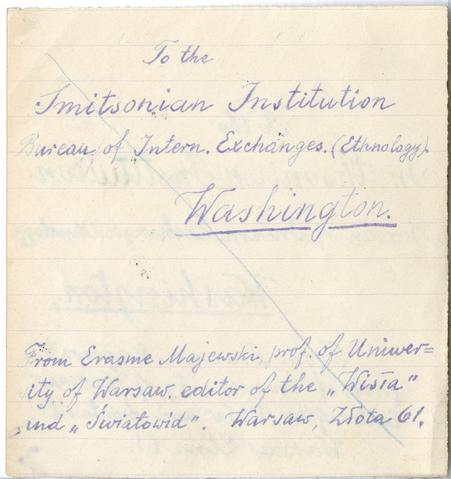 To the
Smitsonian Institution
Bureau of Intern. Exchanges. (Ethnology).
Washington.
From Erasme Majewski, prof. of Uniwer=
ity of Warsaw, editor of the „Wisła"
and „Światowid". Warsaw, Złota 61.